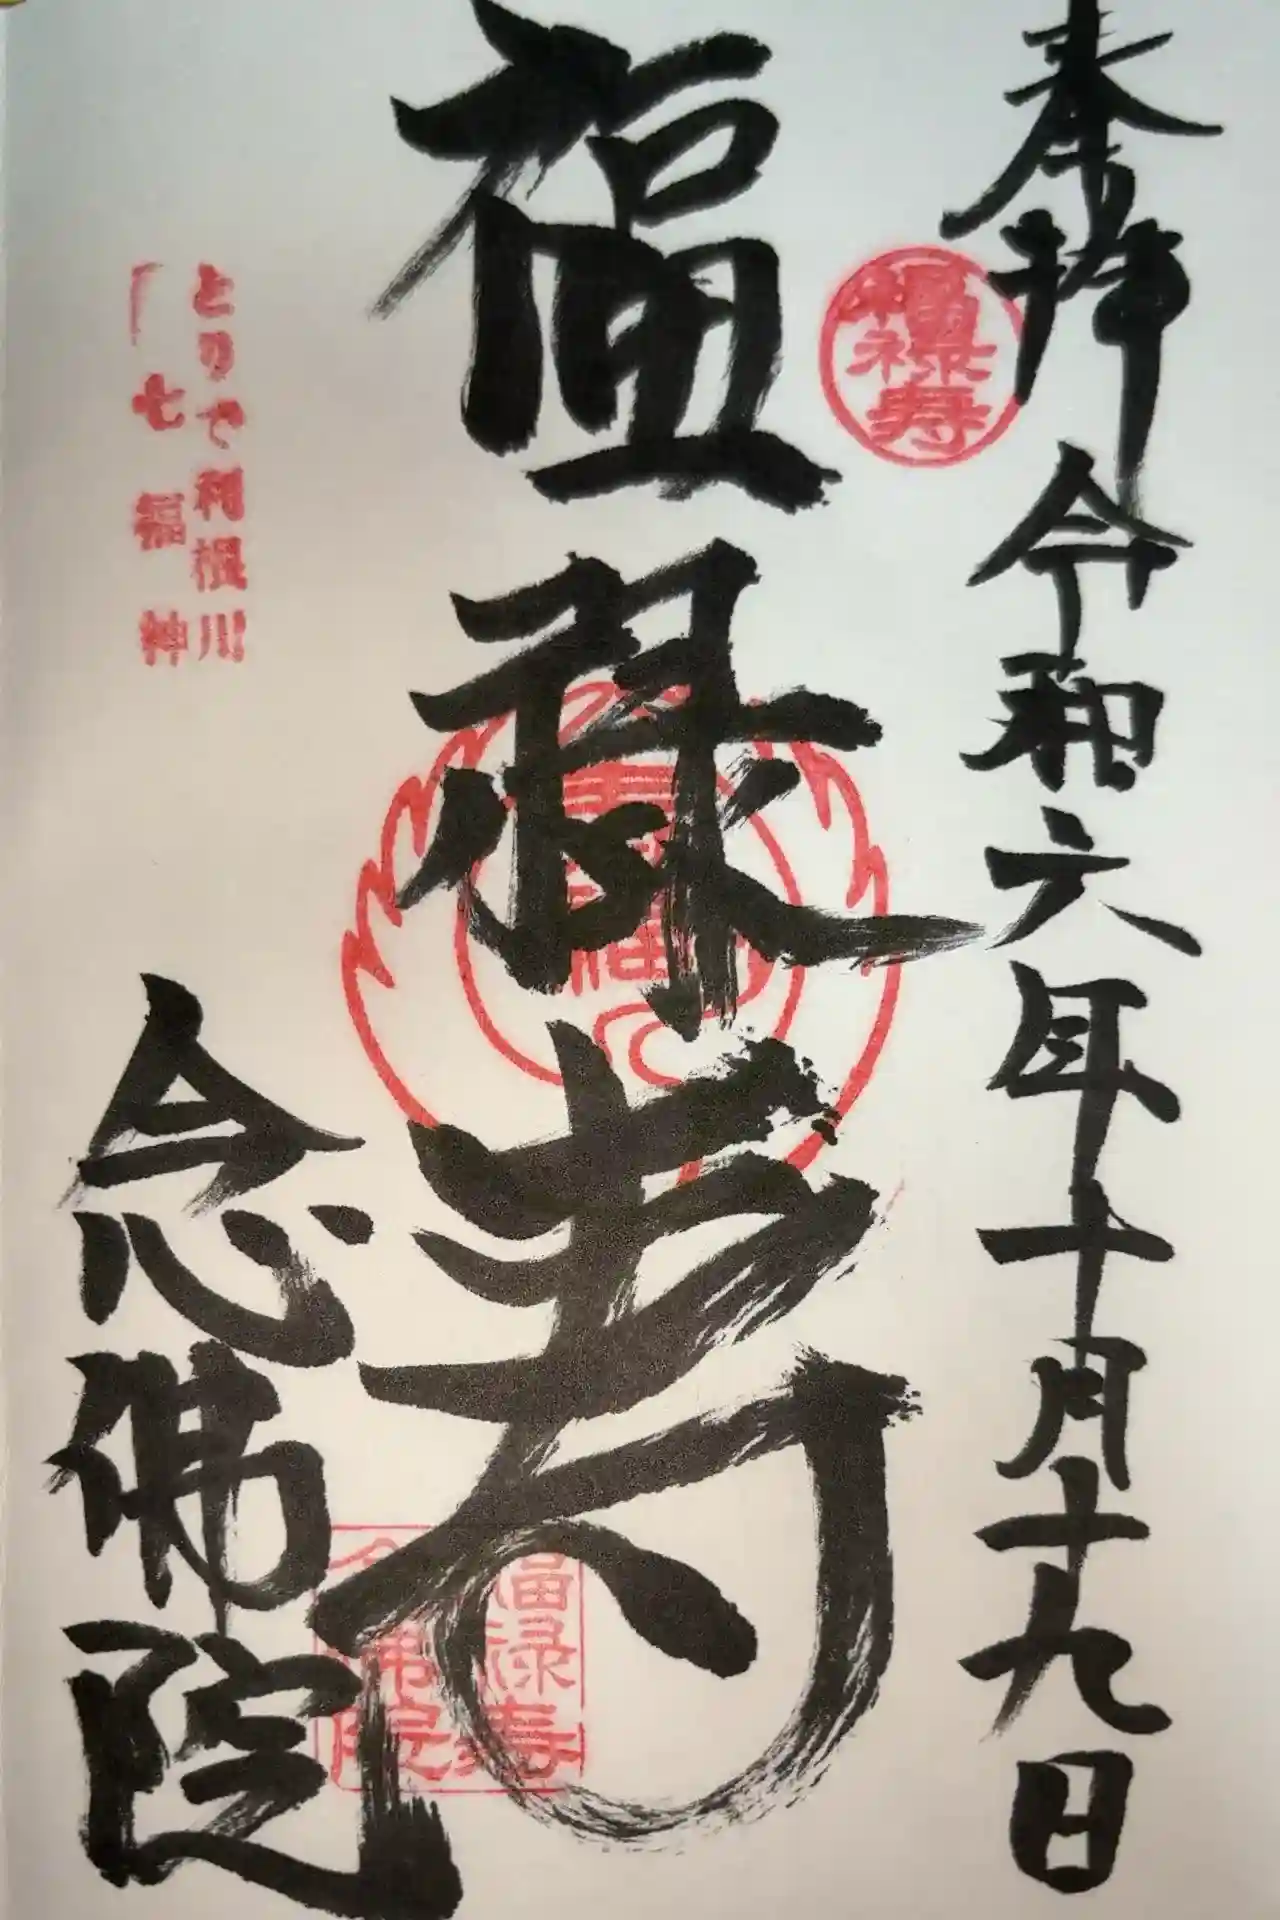 奉拝 令和六年十月十九日
福禄寿
福禄寿
念佛院
とりで利根川
七福神
福禄寿
佛院